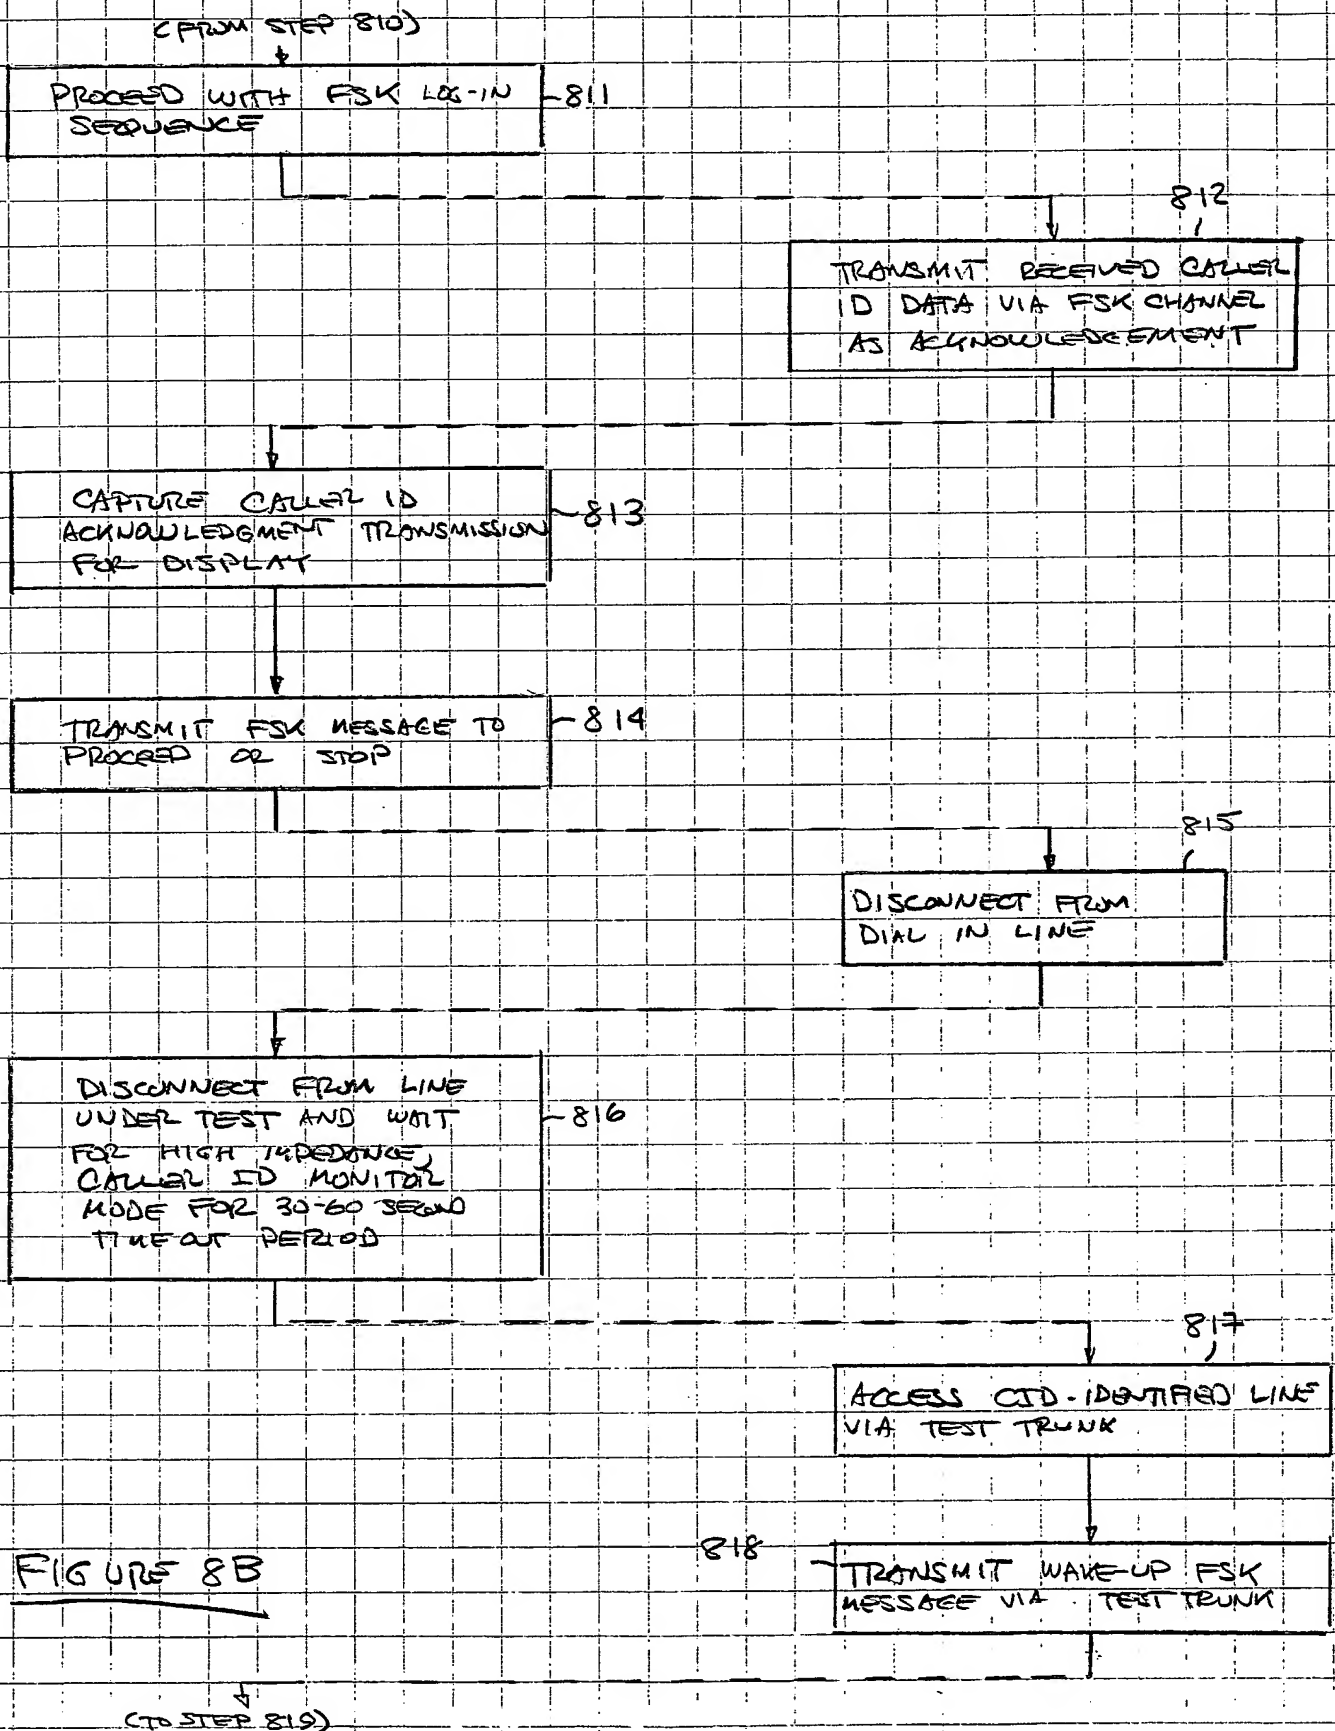 (FROM STEP 810)
PROCEED WITH FSK LOG-IN
SEQUENCE
811
812
TRANSMIT RECEIVED CALLER
ID DATA VIA FSK CHANNEL
AS ACKNOWLEDGEMENT
CAPTURE CALLER ID
ACKNOWLEDGMENT TRANSMISSION
FOR DISPLAY
813
TRANSMIT FSK MESSAGE TO
PROCEED OR STOP
814
815
DISCONNECT FROM
DIAL IN LINE
DISCONNECT FROM LINE
UNDER TEST AND WAIT
FOR HIGH IMPEDANCE,
CALLER ID MONITOR
MODE FOR 30-60 SECOND
TIMEOUT PERIOD
816
817
ACCESS CID-IDENTIFIED LINE
VIA TEST TRUNK
818
TRANSMIT WAKE-UP FSK
MESSAGE VIA TEST TRUNK
FIGURE 8B
(TO STEP 819)